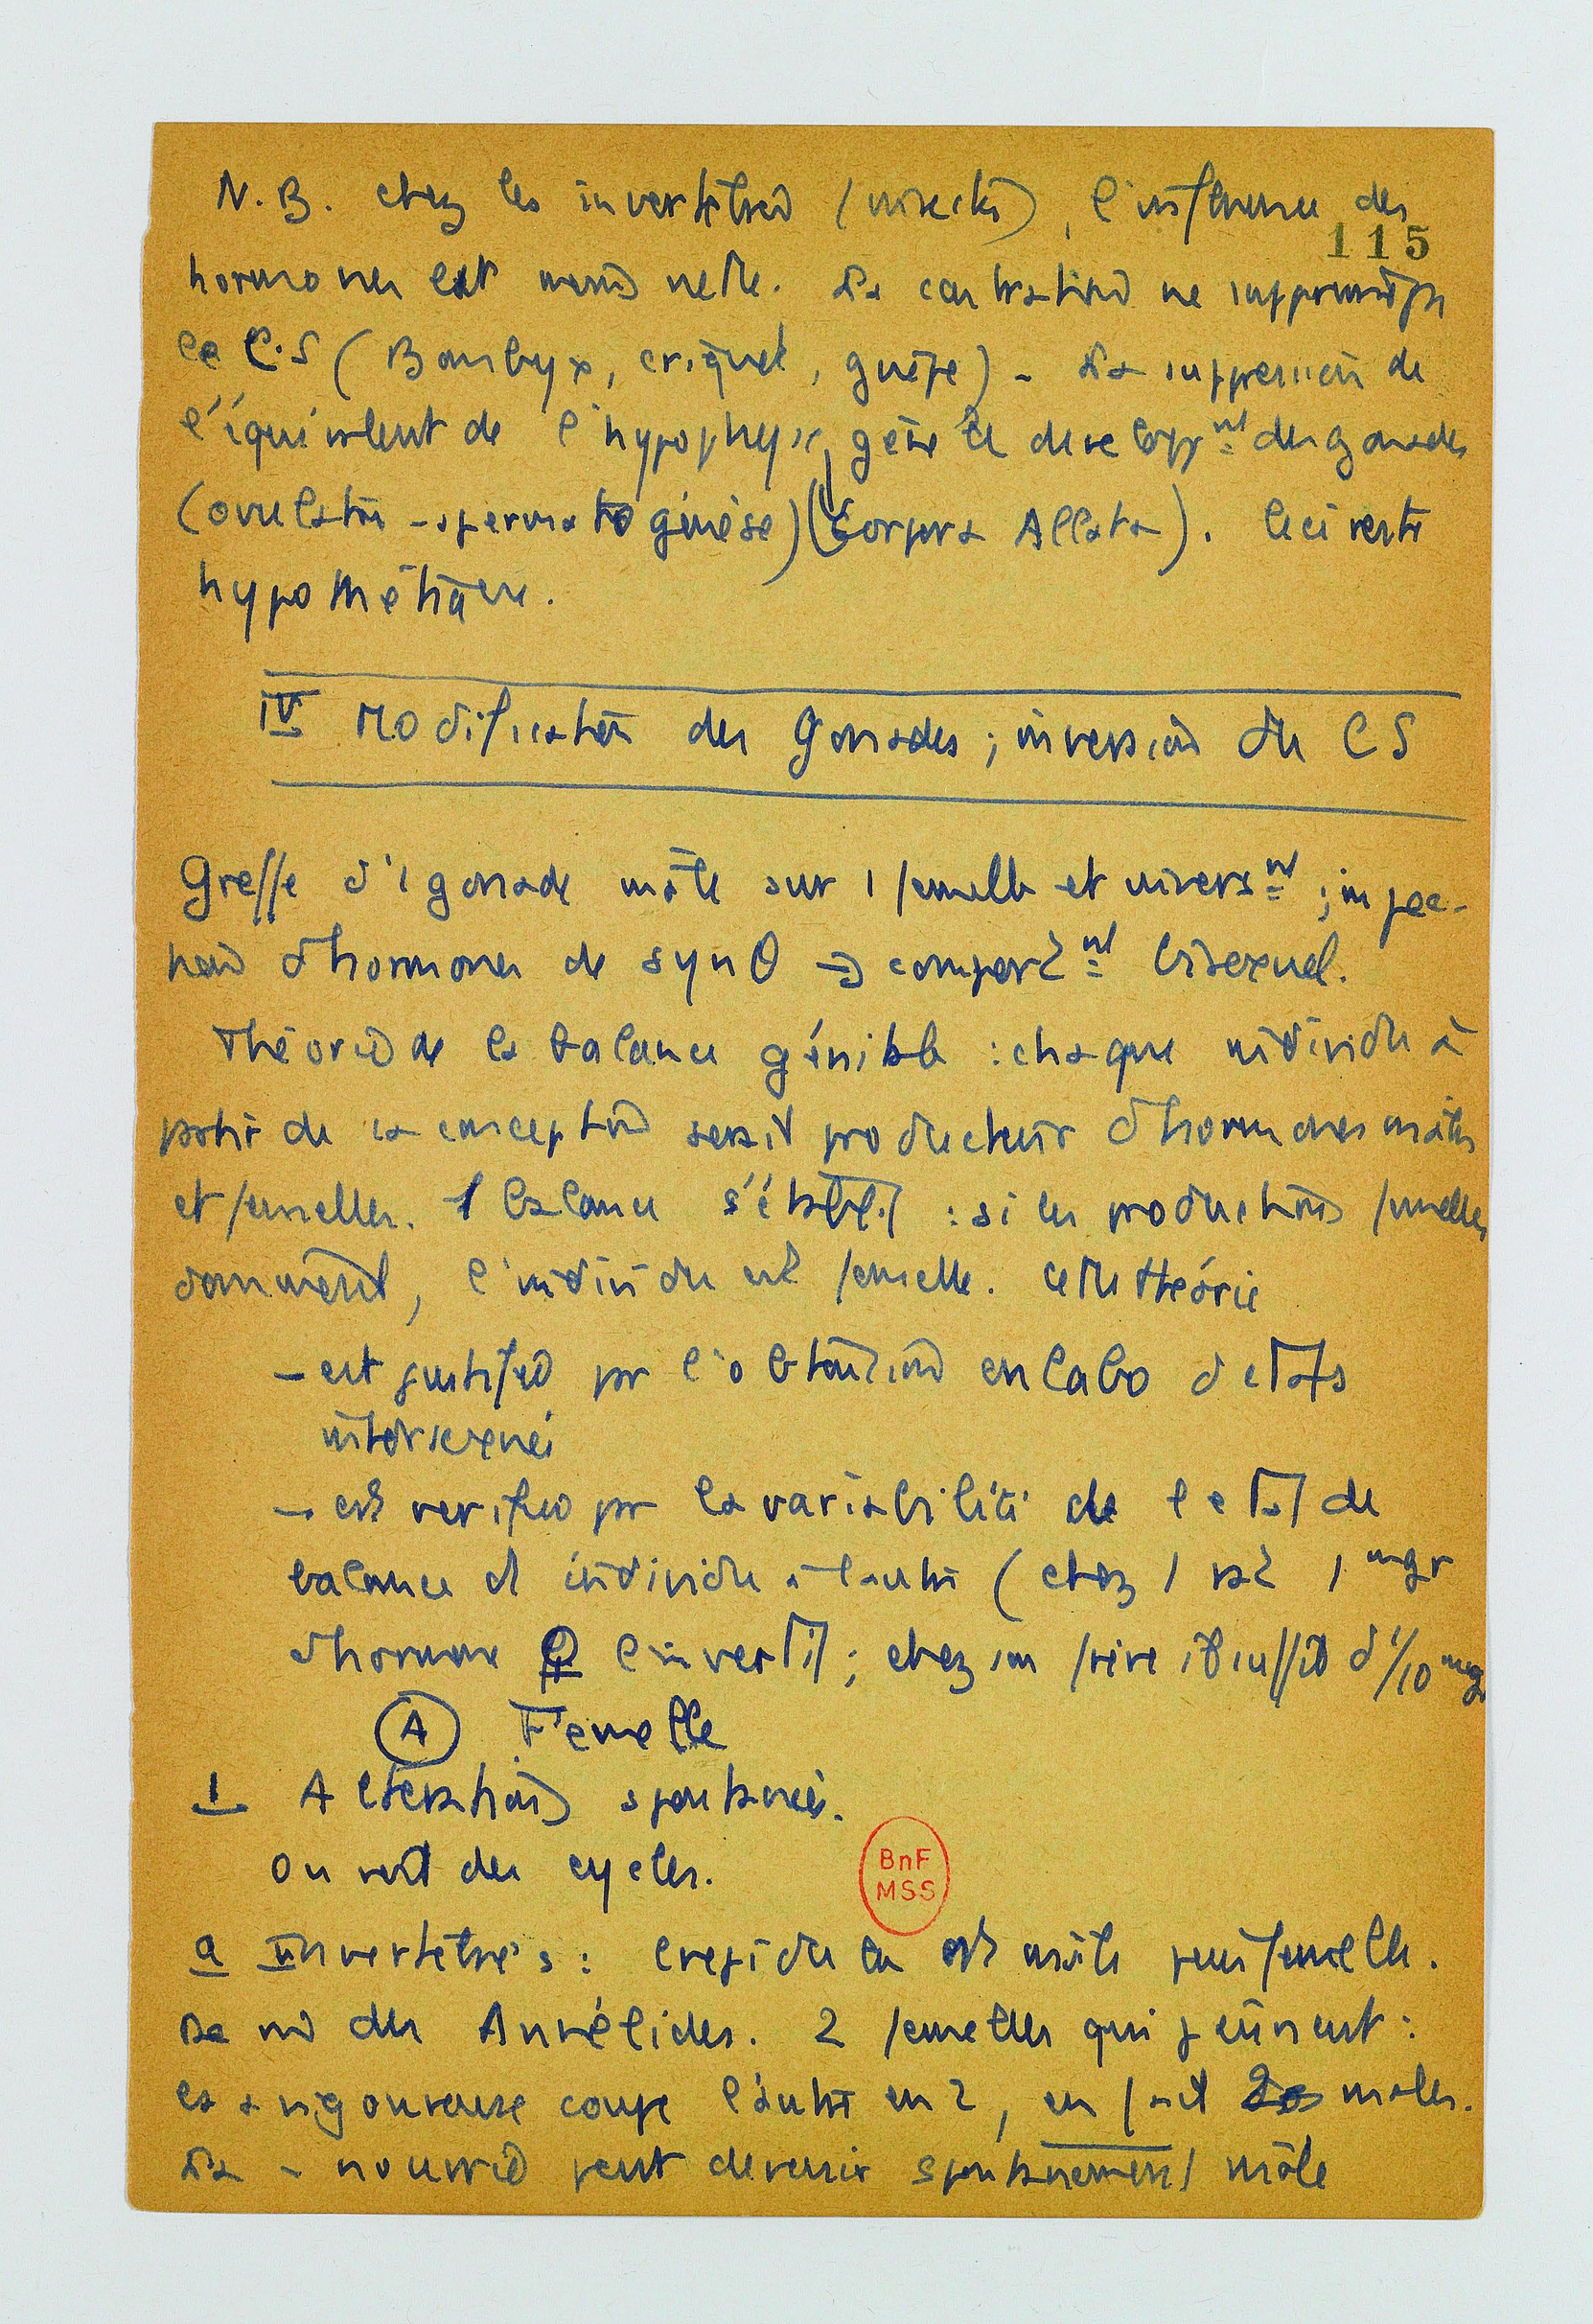 N.B. chez les invertébrés (insectes), l'influence des
115
hormones est moins nette. La castration ne supprime pas
le C.S (Bombyx, criquet, guêpe) - La suppression de
l'équivalent de l'hypophyse, gêne le developp^nt des gonades
(ovulation - spermatogénèse) (Corpora Allata). Ceci reste
hypothétique.
IV Modification des Gonades ; inversion du CS
Greffe d'1 gonade mâle sur 1 femelle et invers^nt ; injec-
tion d'hormones de synθ → comport^nt bisexuel.
Théorie de la balance génitale : chaque individu à
partir de sa conception serait producteur d'hormones mâles
et femelles. 1 balance s'établit : si les productions femelles
dominent, l'individu est femelle. Cette théorie
- est justifiée par l'obtention en labo d'etats
intersexués
- est verifiée par la variabilité de l'etat de
balance d'individu à l'autre (chez 1 rat 1 mgr
d'hormone ♀ l'invertit ; chez son frère il suffit d'1/10 mgr
A Femelle
1 Alterations spontanées.
On voit des cycles.
a Invertébrés : Crepidula est mâle puis femelle.
De m̂ des Annélides. 2 femelles qui jeûnent :
la + vigoureuse coupe l'autre en 2, en fait 2 mâles.
La - nourrie peut devenir spontanement mâle
BnF
MSS